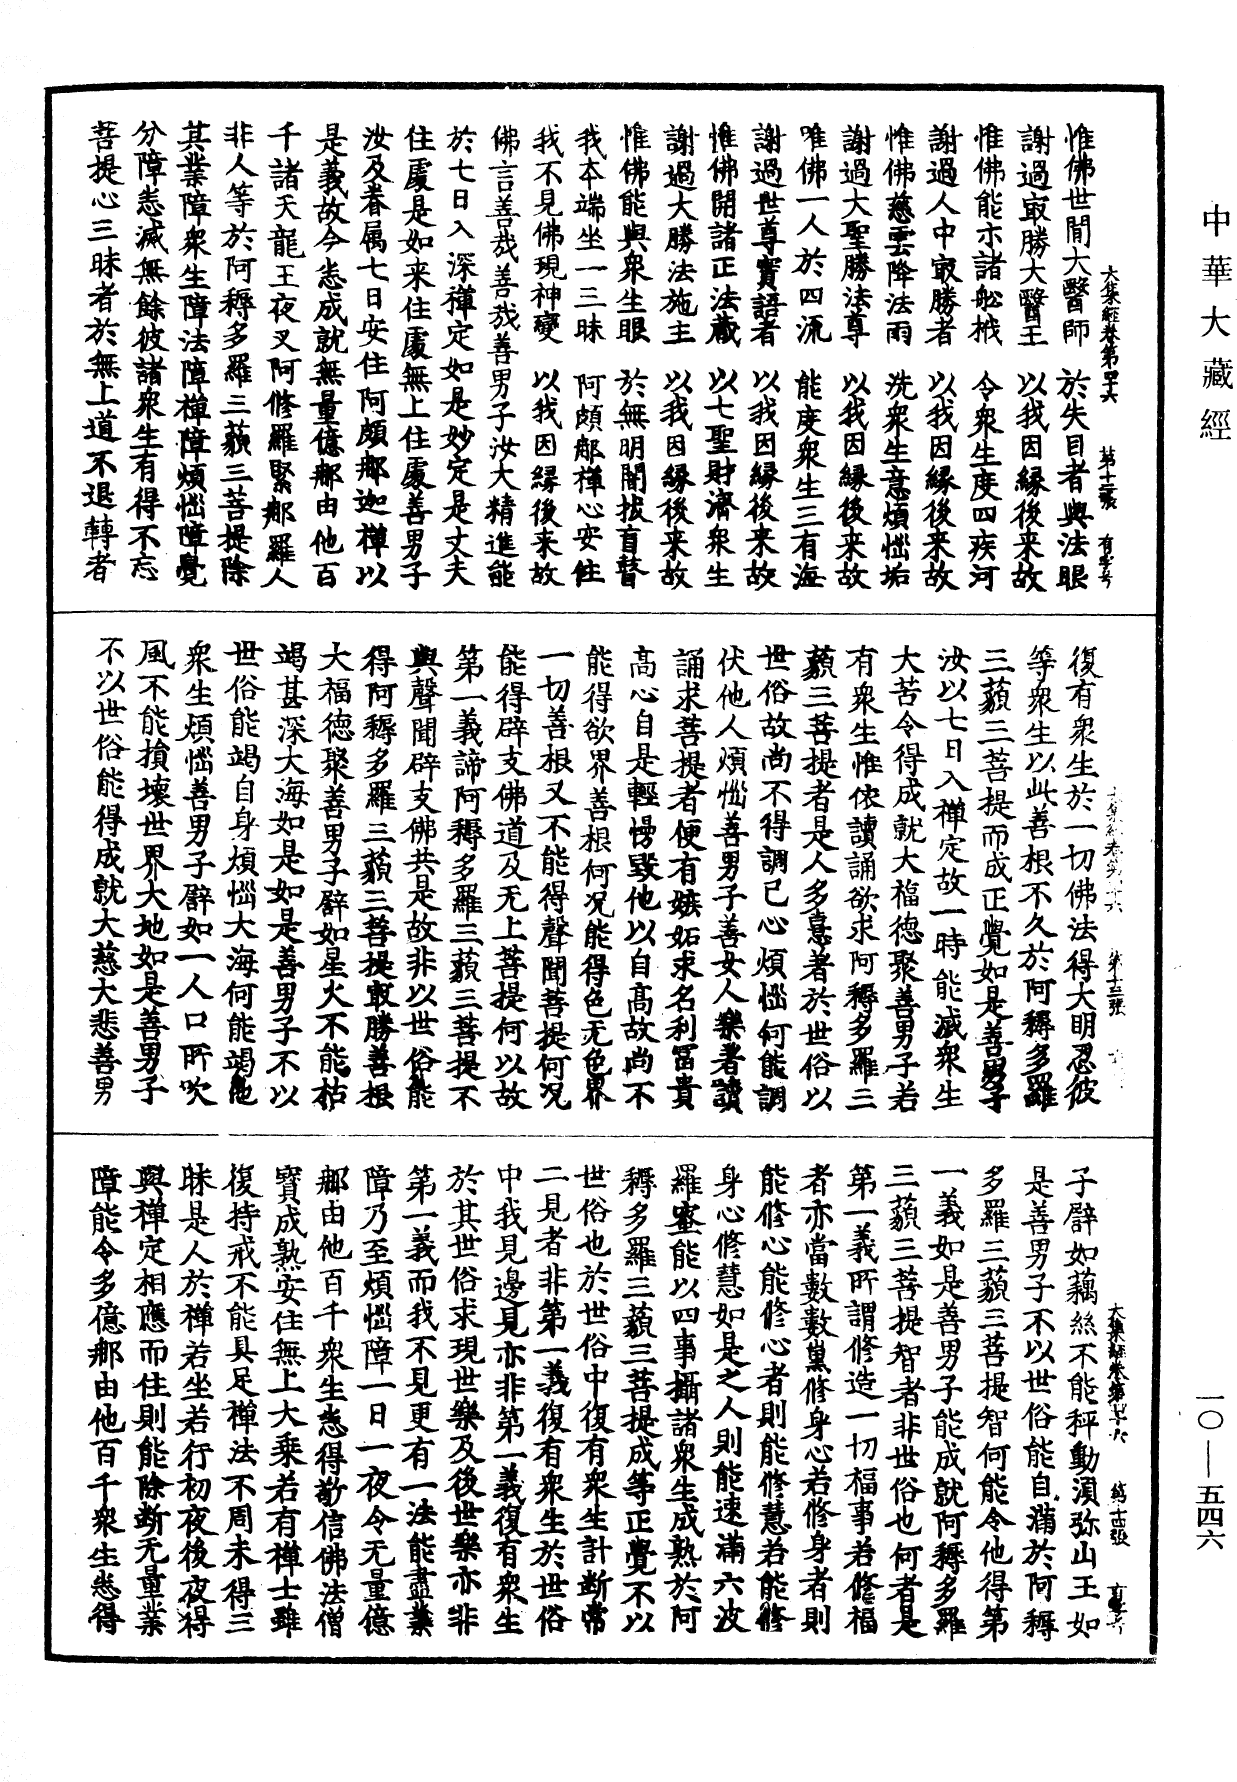 中華大藏經
一〇—五四六
大集經卷第四十六　第十二張　有字号
惟佛世間大醫師　於失目者與法眼
謝過㝡勝大醫王　以我因緣後来故
惟佛能示諸舩栰　令衆生度四疾河
謝過人中㝡勝者　以我因緣後来故
惟佛慈雲降法雨　洗衆生意煩惱垢
謝過大聖勝法尊　以我因緣後来故
唯佛一人於四流　能度衆生三有海
謝過世尊實語者　以我因緣後来故
惟佛開諸正法藏　以七聖財濟衆生
謝過大勝法施主　以我因緣後来故
惟佛能與衆生眼　於無明闇拔盲瞽
我本端坐一三昧　阿頗䣯禪心安住
我不見佛現神變　以我因緣後来故
佛言善哉善哉善男子汝大精進能
於七日入深禪定如是妙定是丈夫
住處是如来住處無上住處善男子
汝及眷属七日安住阿頗䣯迦禪以
是義故今悉成就無量億䣯由他百
千諸天龍王夜叉阿修羅緊䣯羅人
非人等於阿耨多羅三藐三菩提除
其業障衆生障法障禪障煩惱障覺
分障悉滅無餘彼諸衆生有得不忘
菩提心三昧者於無上道不退轉者
復有衆生於一切佛法得大明忍彼
等衆生以此善根不久於阿耨多羅
三藐三菩提而成正覺如是善男子
汝以七日入禪定故一時能滅衆生
大苦令得成就大福德聚善男子若
有衆生惟依讀誦欲求阿耨多羅三
藐三菩提者是人多憙著於世俗以
世俗故尚不得調己心煩惱何能調
伏他人煩惱善男子善女人樂著讀
誦求菩提者便有嫉妬求名利冨貴
高心自是輕慢毀他以自高故尚不
能得欲界善根何况能得色无色界
一切善根又不能得聲聞菩提何况
能得辟支佛道及无上菩提何以故
第一義諦阿耨多羅三藐三菩提不
與聲聞辟支佛共是故非以世俗能
得阿耨多羅三藐三菩提㝡勝善根
大福德聚善男子譬如星火不能枯
竭甚深大海如是如是善男子不以
世俗能竭自身煩惱大海何能竭他
衆生煩惱善男子譬如一人口所吹
風不能損壞世界大地如是善男子
不以世俗能得成就大慈大悲善男
子譬如藕絲不能秤動湏弥山王如
是善男子不以世俗能自滿於阿耨
多羅三藐三菩提智何能令他得第
一義如是善男子能成就阿耨多羅
三藐三菩提智者非世俗也何者是
第一義所謂修造一切福事若修福
者亦當數數熏修身心若修身者則
能修心能修心者則能修慧若能修
身心修慧如是之人則能速滿六波
羅蜜能以四事攝諸衆生成熟於阿
耨多羅三藐三菩提成等正覺不以
世俗也於世俗中復有衆生計断常
二見者非第一義復有衆生於世俗
中我見邊見亦非第一義復有衆生
於其世俗求現世樂及後世樂亦非
第一義而我不見更有一法能盡業
障乃至煩惱障一日一夜令无量億
䣯由他百千衆生悉得敬信佛法僧
寶成熟安住無上大乘若有禪士雖
復持戒不能具足禪法不周未得三
昧是人於禪若坐若行初夜後夜得
與禪定相應而住則能除断无量業
障能令多億䣯由他百千衆生悉得